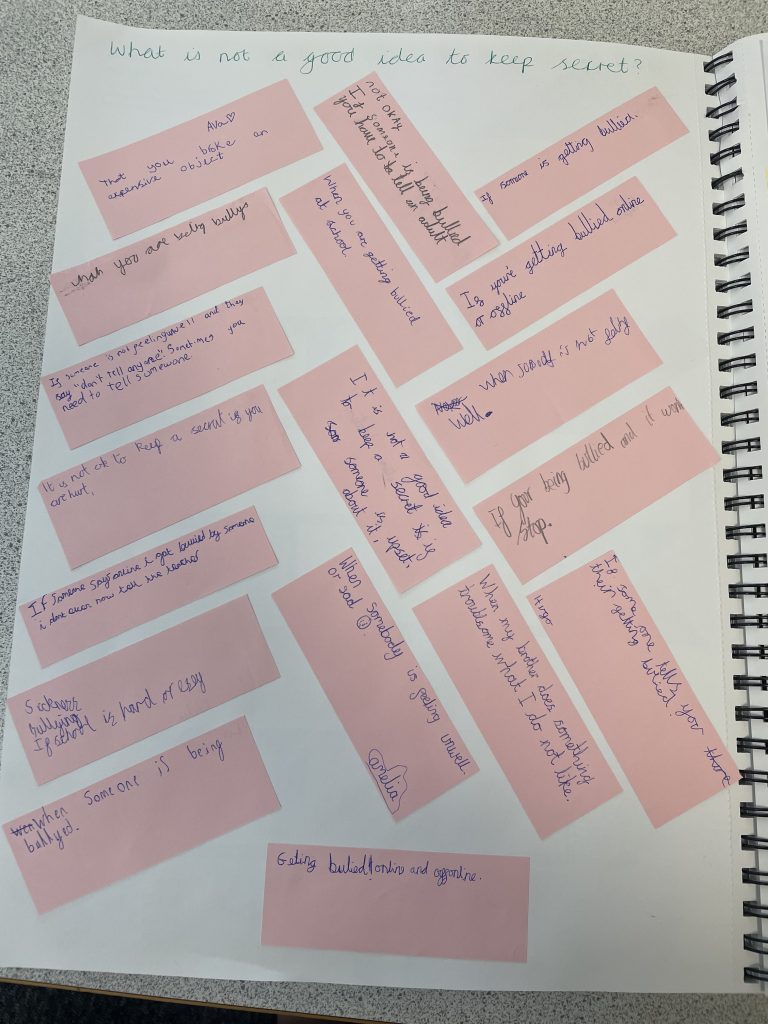 What is not a good idea to keep secret?
Ava♡
That you boke an
expensive object
not okay
If someone is being bullied
you have to be tell an adult
If someone is getting bullied.
When you are getting bullied
at school.
whah you are being bullys
If you're getting bullied online
or offline
If someone is not feeling well and they
say "don't tell anyone". Sometimes you
need to tell someone.
when sobody is not
well.
It is not a good idea
to keep a secret if
someone is upset.
about it,
It is not ok to keep a secret if you
are hurt,
If your being bullied and it wont
Stop.
If someone says online i got bullied by someone
i dont even now tell the teacher
When Somebody is feeling unwell
or sad ☹
amelia
When my brother does something
troublsome what I do not like.
Hugo
If some one tells you there
their getting bulied!
Sickness
Bullying
If school is hard or easy
When Someone is being
bullyed.
Geting bulied! online and offonline.